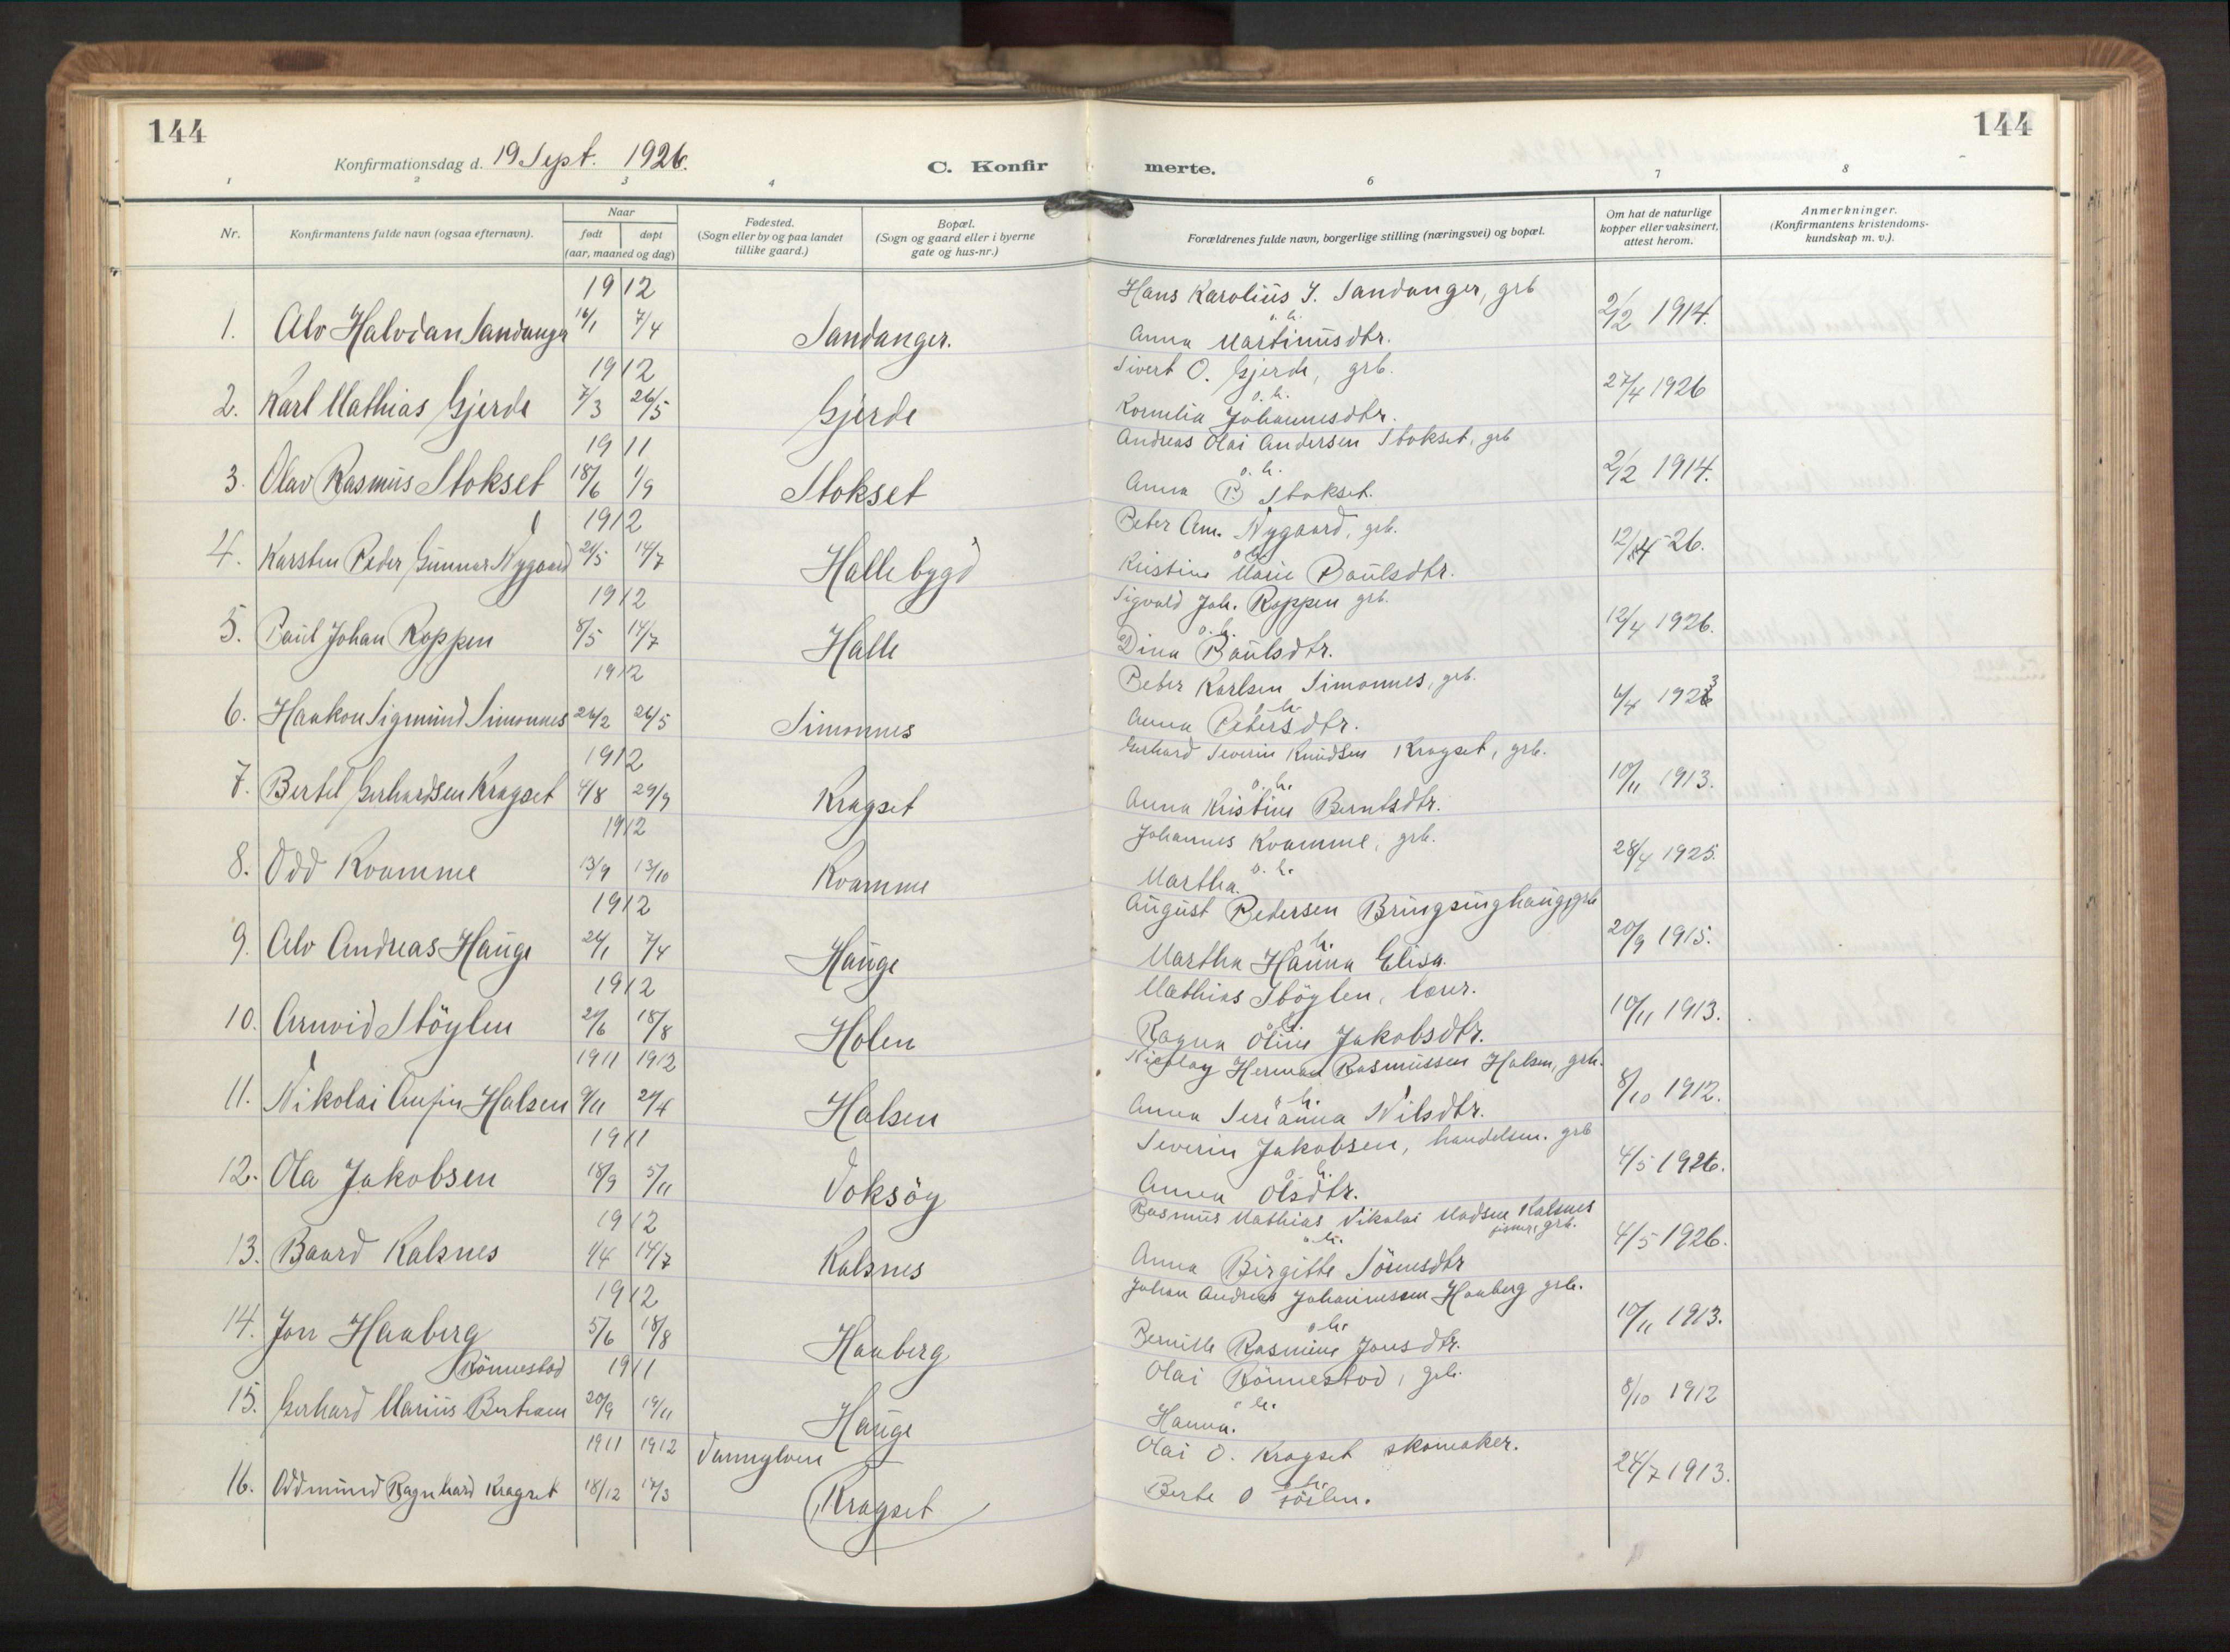 144
144
Konfirmationsdag d. 19 Sept. 1926.
C. Konfir
merte.
1 2 3 4 6 7 8
Nr.
Konfirmantens fulde navn (ogsaa efternavn).
Naar
født
døpt
(aar, maaned og dag)
Fødested.
(Sogn eller by og paa landet
tillike gaard.)
Bopæl.
(Sogn og gaard eller i byerne
gate og hus-nr.)
Forældrenes fulde navn, borgerlige stilling (næringsvei) og bopæl.
Om hat de naturlige
kopper eller vaksinert,
attest herom.
Anmerkninger.
(Konfirmantens kristendoms-
kundskap m. v.).
1912 Hans Karolius J. Sandanger, grb
1. Alv Halvdan Sandanger 16/1 7/4 Sandanger. o. h. 2/12 1914.
Anna Martinusdtr.
1912 Sivert O. Gjerde, grb.
2. Karl Mathias Gjerde 7/3 26/5 Gjerde o. h. 27/4 1926
Kornelia Johannesdtr.
1911 Andreas Olai Andersen Stokset, grb
3. Olav Rasmus Stokset 18/6 1/9 Stokset o. h. 2/12 1914.
Anna P. Stokset.
1912 Peter Am. Nygaard, grb.
4. Karsten Peder Gunnar Nygaard 21/5 14/7 Hallebygd o. h. 12/4 26.
Kristine Marie Paulsdtr.
1912 Sigvald Joh. Roppen grb.
5. Paul Johan Roppen 8/5 14/7 Halle o. h. 12/4 1926.
Dina Paulsdtr.
1912 Peter Karlsen Simonnes, grb.
6. Haakon Sigmund Simonnes 26/2 26/5 Simonnes o. h. 6/4 1923
Anna Petersdtr.
1912 Gerhard Severin Knudsen Kragset, grb.
7. Bertel Gerhardsen Kragset 4/8 29/9 Kragset o. h. 10/11 1913.
Anna Kristine Berntsdtr.
1912 Johannes Kvamme, grb.
8. Odd Kvamme 13/9 13/10 Kvamme o. h. 28/4 1925.
Martha.
1912 August Petersen Bringsinghaug grb
9. Alv Andreas Hauge 24/1 7/4 Hauge o. h. 20/9 1915.
Martha Hanna Elisa.
1912 Mathias Støylen, lærer.
10. Arnvid Støylen 29/6 18/8 Holen 10/11 1913.
Ragna Oline Jakobsdtr.
1911 1912 Nicolay Herman Rasmussen Halsen, grb.
11. Nikolai Anfin Halsen 9/11 21/4 Halsen o. h. 8/10 1912.
Anna Serianna Nilsdtr.
1911 Severin Jakobsen, handelsm. grb
12. Ola Jakobsen 18/9 5/11 Voksöy o. h. 4/5 1926.
Anna Olsdtr.
1912 Rasmus Mathias Nikolai Madsen Kalsnes
fisker, grb.
13. Baard Kalsnes 1/4 14/7 Kalsnes o. h. 4/5 1926.
Anna Birgitte Sörensdtr
1912 Johan Andreas Johannessen Haaberg grb.
14. Jon Haaberg 5/6 18/8 Haaberg o. h. 10/11 1913.
Pernille Rasmine Jonsdtr.
Rönnestad 1911 Olai Rönnestad, grb.
15. Gerhard Marius Bertram 20/9 19/11 Hauge o. h. 8/10 1912
Hanna.
1911 1912 Vannylven Olai O. Kragset skomaker.
16. Oddmund Ragnhard Kragset 18/12 17/3 Kragset o. h. 24/7 1913.
Berte O